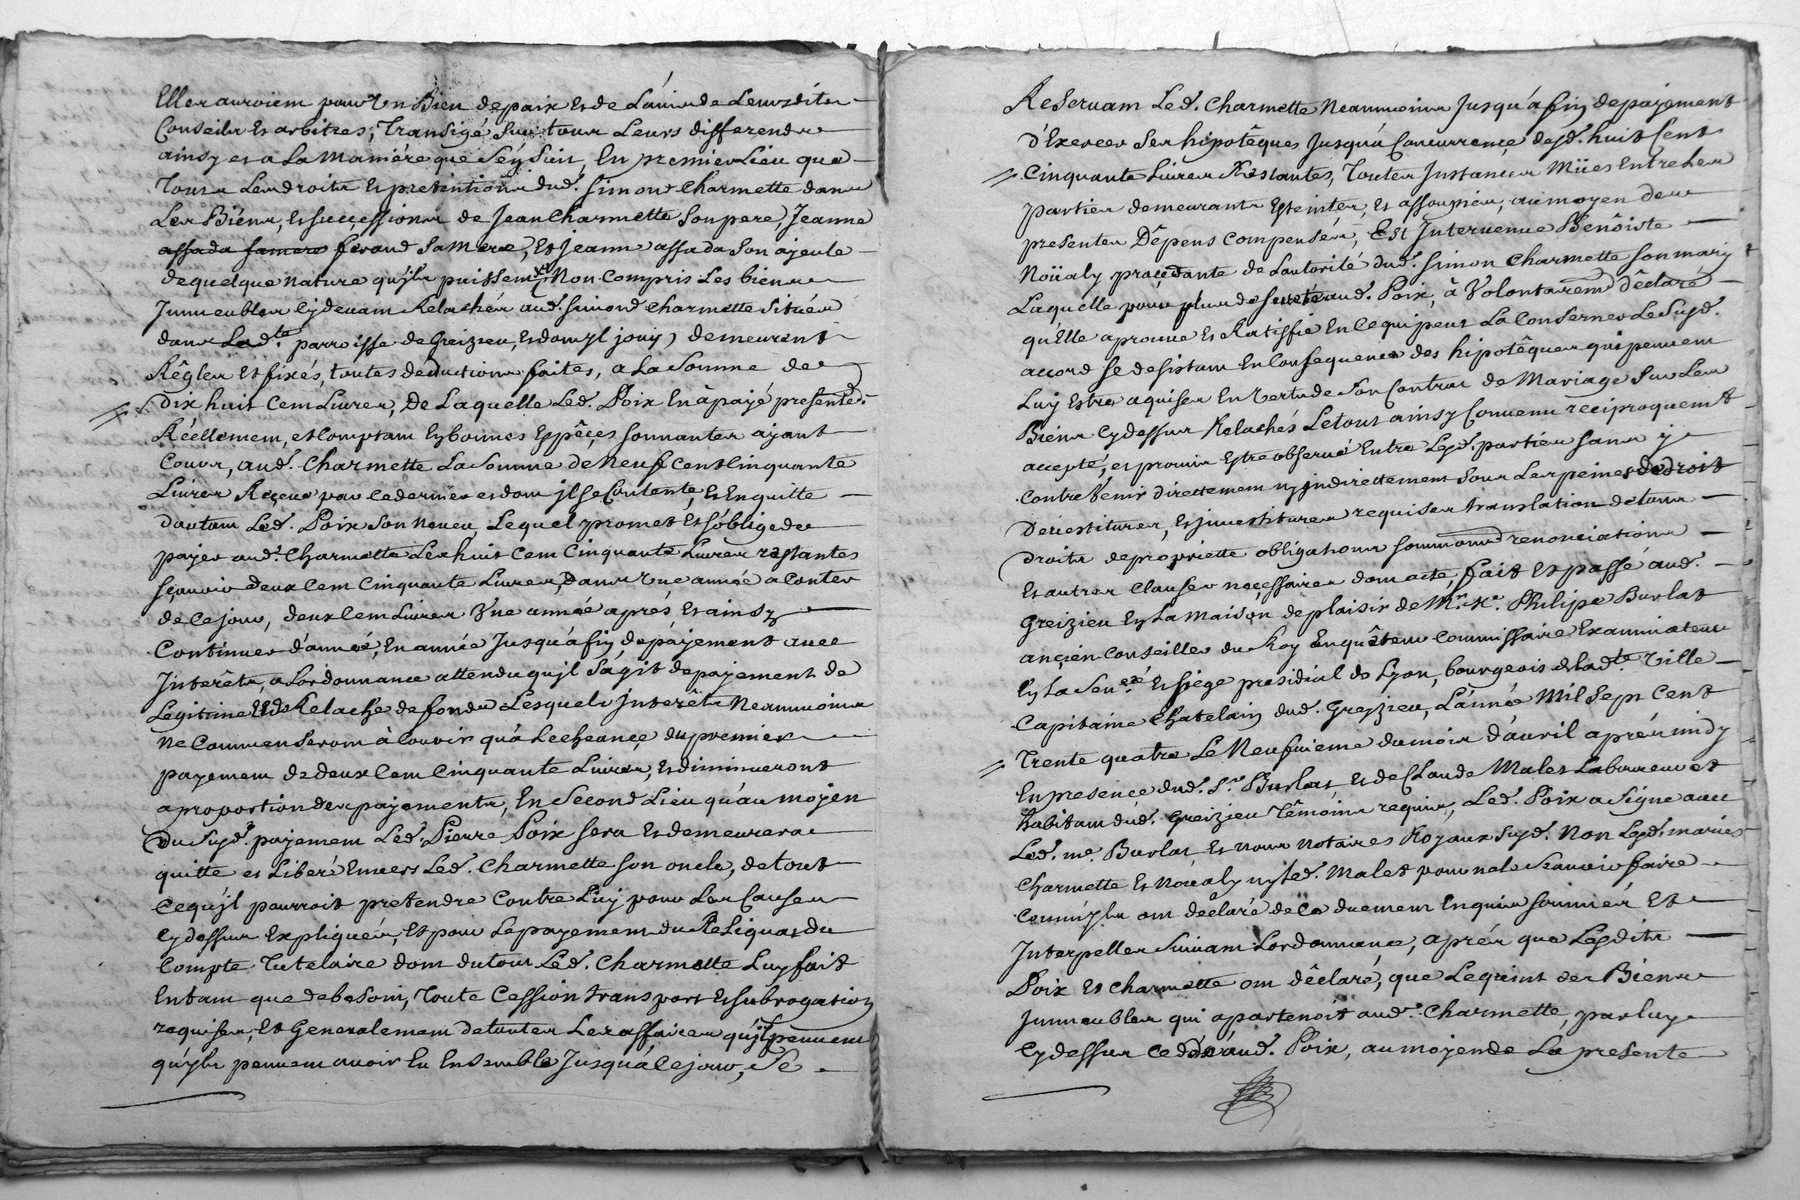 Elles auroient pour Un Bien de paix Et de L'avis de Leursdits
Conseils Et arbitres, Transigé sur tous Leurs differends
ainsy et a La Maniére que s'En suit, En premier Lieu que
Tous Les droits Et pretentions dud. Simond Charmette dans
Les Biens, Et successions de Jean Charmette son pere, Jeanne
assada famere ferand sa Mere, Et Jeanne assada son ayeule
de quelque nature qu'jls puissent Non Compris Les biens
Jmmeubles Cy devant Relachés aud. Simond Charmette situés
dans Lad.te parroisse de Greizieu, Et dont jl jouit) demeurent
Réglés Et fixés, toutes deductions faites, a La somme de
Dix huit Cent Livres, De Laquelle Led. Poix En à payé presentem.t
Réellement, et Comptant En bonnes Espéces sonnantes ayant
Cours, aud. Charmette La somme de Neuf Cent Cinquante
Livres Reçeue par ce dernier et dont jl se Contente, Et En quitte
d'autant Led. Poix son Neveu Lequel promet Et s'oblige de
payer aud. Charmette Les huit Cent Cinquante Livres restantes
sçavoir deux Cent Cinquante Livres, Dans Une année a Conter
de Ce jour, deux Cent Livres Une année aprés, Et ainsy
Continuer d'année, En année Jusqu'à fin de payement avec
Jnterêts, a L'ordonnance attendu qu'jl s'agit de payement de
Legitime Et de Relache de fonds Lesquels Jnterêts Neanmoins
Ne Commenseront à Courir qu'à L'echeance du premier
payement de deux Cent Cinquante Livres, Et diminueront
a proportion des payements, En second Lieu qu'au moyen
du susd. payement Led. Pierre Poix sera Et demeurera
quitte et Liberé Envers Led. Charmette son oncle, de tout
Ce qu'jl pourroit pretendre Contre Luy pour Les Causes
Cy dessus Expliquées, Et pour Le payement du Reliquat du
Compte Tutelaire dont du tout Led. Charmette Luy fait
En tant que de besoin, Toute Cession transport Et subrogation
requises, Et Generalement de toutes Les affaires qu'jls peuvent
qu'jls peuvent avoir Eu Ensemble Jusqu'à Ce jour, Se
Reservant Led. Charmette Neanmoins Jusqu'à fin de payement
d'Exercer ses hipotêques Jusqu'à Concurrence desd. huit Cent
Cinquante Livres Restantes, Toutes Jnstances Mües Entre Les
parties demeurants Esteintes, Et assoupies, au moyen des
presentes Dêpens Compensés, Est Jntervenue Benôiste
Noüaly procedante de L'autorité dud. Simon Charmette son mary
Laquelle pour plus de surete aud. Poix, à Volontairem.t Dêclaré
qu'Elle aprouve Et Ratiffie En Ce qui peut La Conserner Le susd.
accord se desistant En Consequence des hipotêques qui peuvent
Luy Estre aquises En Vertu de son Contrat de Mariage sur Les
Biens Cy dessus Relachés Le tout ainsy Convenu réciproquem.t
accepté, et promis Estre observé Entre Lesd. parties sans y
Contrevenir directement ny jndirectement sous Les peines de droit
Devestitures, Et jnvestitures requises translation de tous
Droits de proprietté obligations soumissions renonciations
Et autres Clauses neçessaires dont acte, fait Et passé aud.
Greizieu En La maison de plaisir de Mr. Me. Philipe Burlat
ançien Conseiller du Roy Enquêteur Commissaire Examinateur
En La Sen.ée Et siége presidial de Lyon, bourgeois de Lad.te Ville
Capitaine Chatelain dud. Greyzieu, L'année Mil Sept Cent
Trente quatre Le Neufvieme du mois d'avril aprés midy
En presence dud. Sr. Burlat Et de Claude Malet Laboureur et
habitant dud. Greizieu Témoins requis, Led. Poix a signe avec
Led. me. Burlat Et nous Notaires Royaux susd. Non Lesd. mariés
Charmette Et Nouäly ny Led. Malet pour ne Le sçavoir faire
Comm'jls ont déclaré de Ce duement Enquis sommés Et
Jnterpellés suivant L'ordonnance, aprés que Lesdits
Poix Et Charmette ont déclaré, que Le quint des Biens
Jmmeubles qui apartenoit aud. Charmette, par luy
Cy dessus Cedés aud. Poix, au moyen de La presente